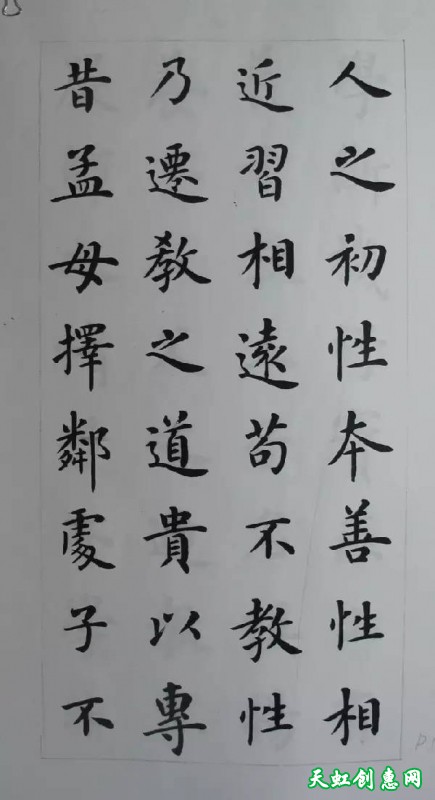 人之初性本善性相
近習相遠苟不教性
乃遷教之道貴以專
昔孟母擇鄰處子不
天虹创惠网